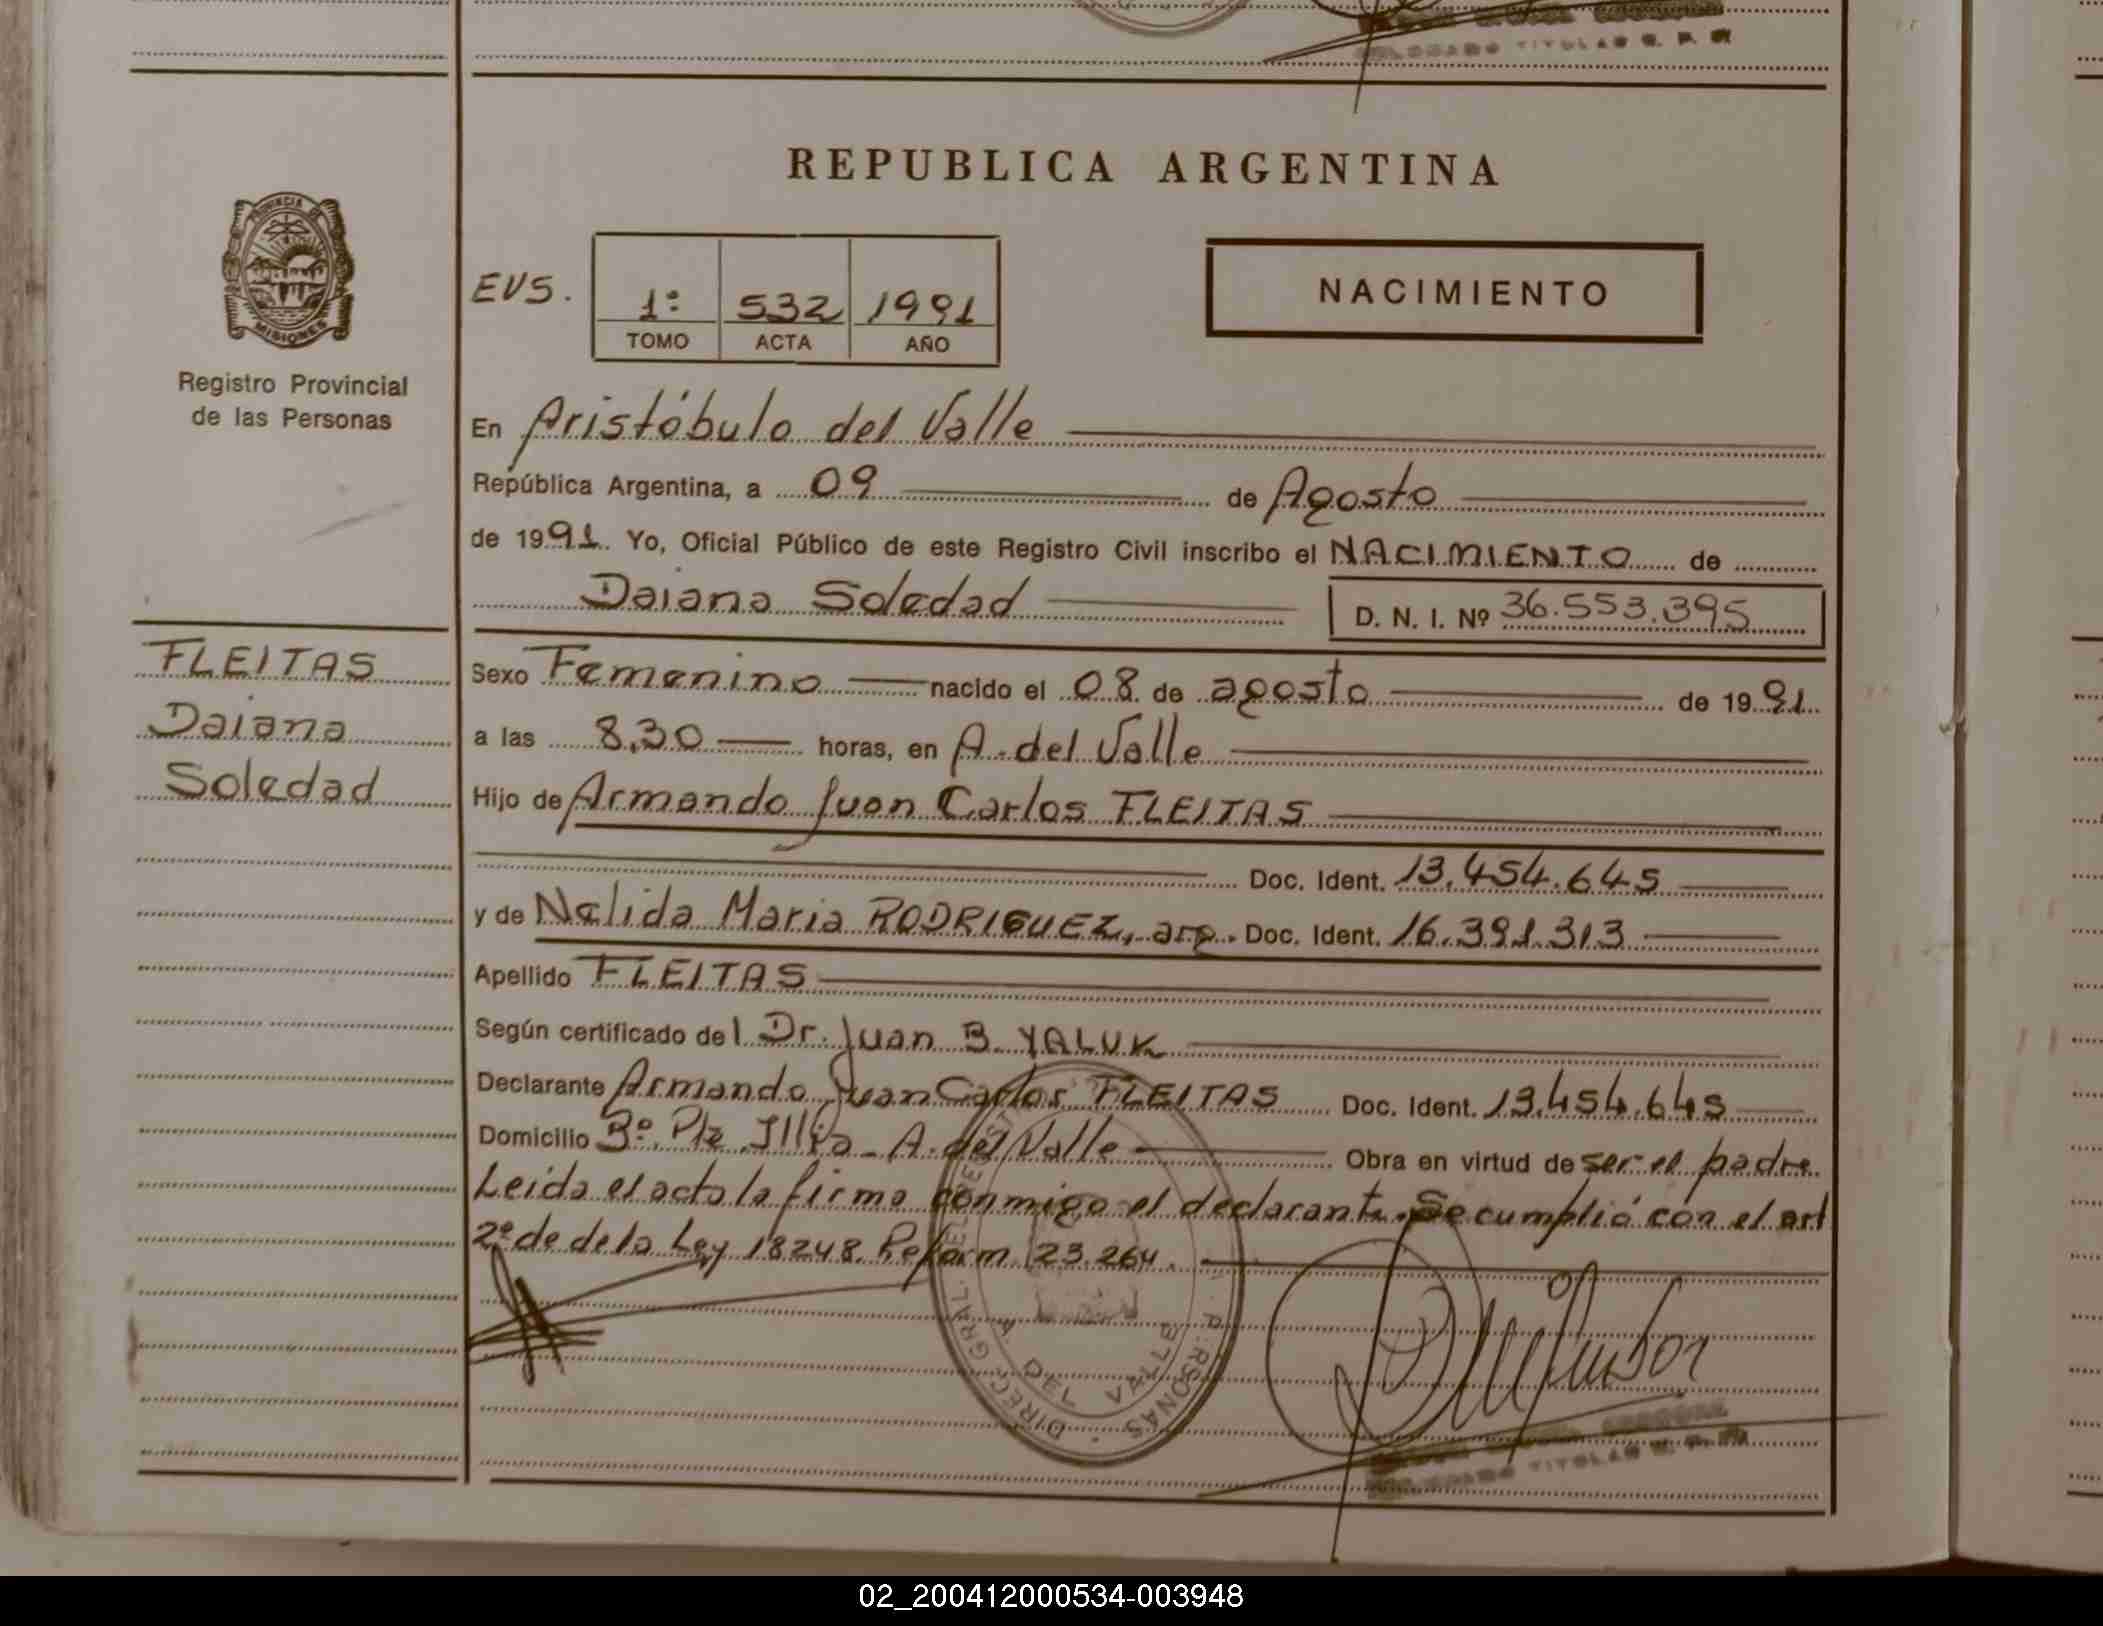 REPUBLICA ARGENTINA
PROVINCIA DE
MISIONES
Registro Provincial
de las Personas
EVS.
1º 532 1991
TOMO ACTA AÑO
NACIMIENTO
En Aristóbulo del Valle
República Argentina, a 09 de Agosto
de 1991 Yo, Oficial Público de este Registro Civil inscribo el NACIMIENTO de
Daiana Soledad D. N. I. Nº 36.553.395
FLEITAS
Daiana
Soledad
Sexo Femenino nacido el 08 de agosto de 1991
a las 8,30 horas, en A. del Valle
Hijo de Armando Juan Carlos FLEITAS
Doc. Ident. 13.454.645
y de Nelida Maria RODRIGUEZ, arg. Doc. Ident. 16.391.313
Apellido FLEITAS
Según certificado del Dr. Juan B. YALUK
Declarante Armando Juan Carlos FLEITAS Doc. Ident. 13.454.645
Domicilio Bº. Pte Illia - A. del Valle Obra en virtud de ser el padre.
Leida el acta la firma conmigo el declarante. Se cumplió con el art
2º de de la Ley 18248 Reform 23.264.
TITULAR
02_200412000534-003948